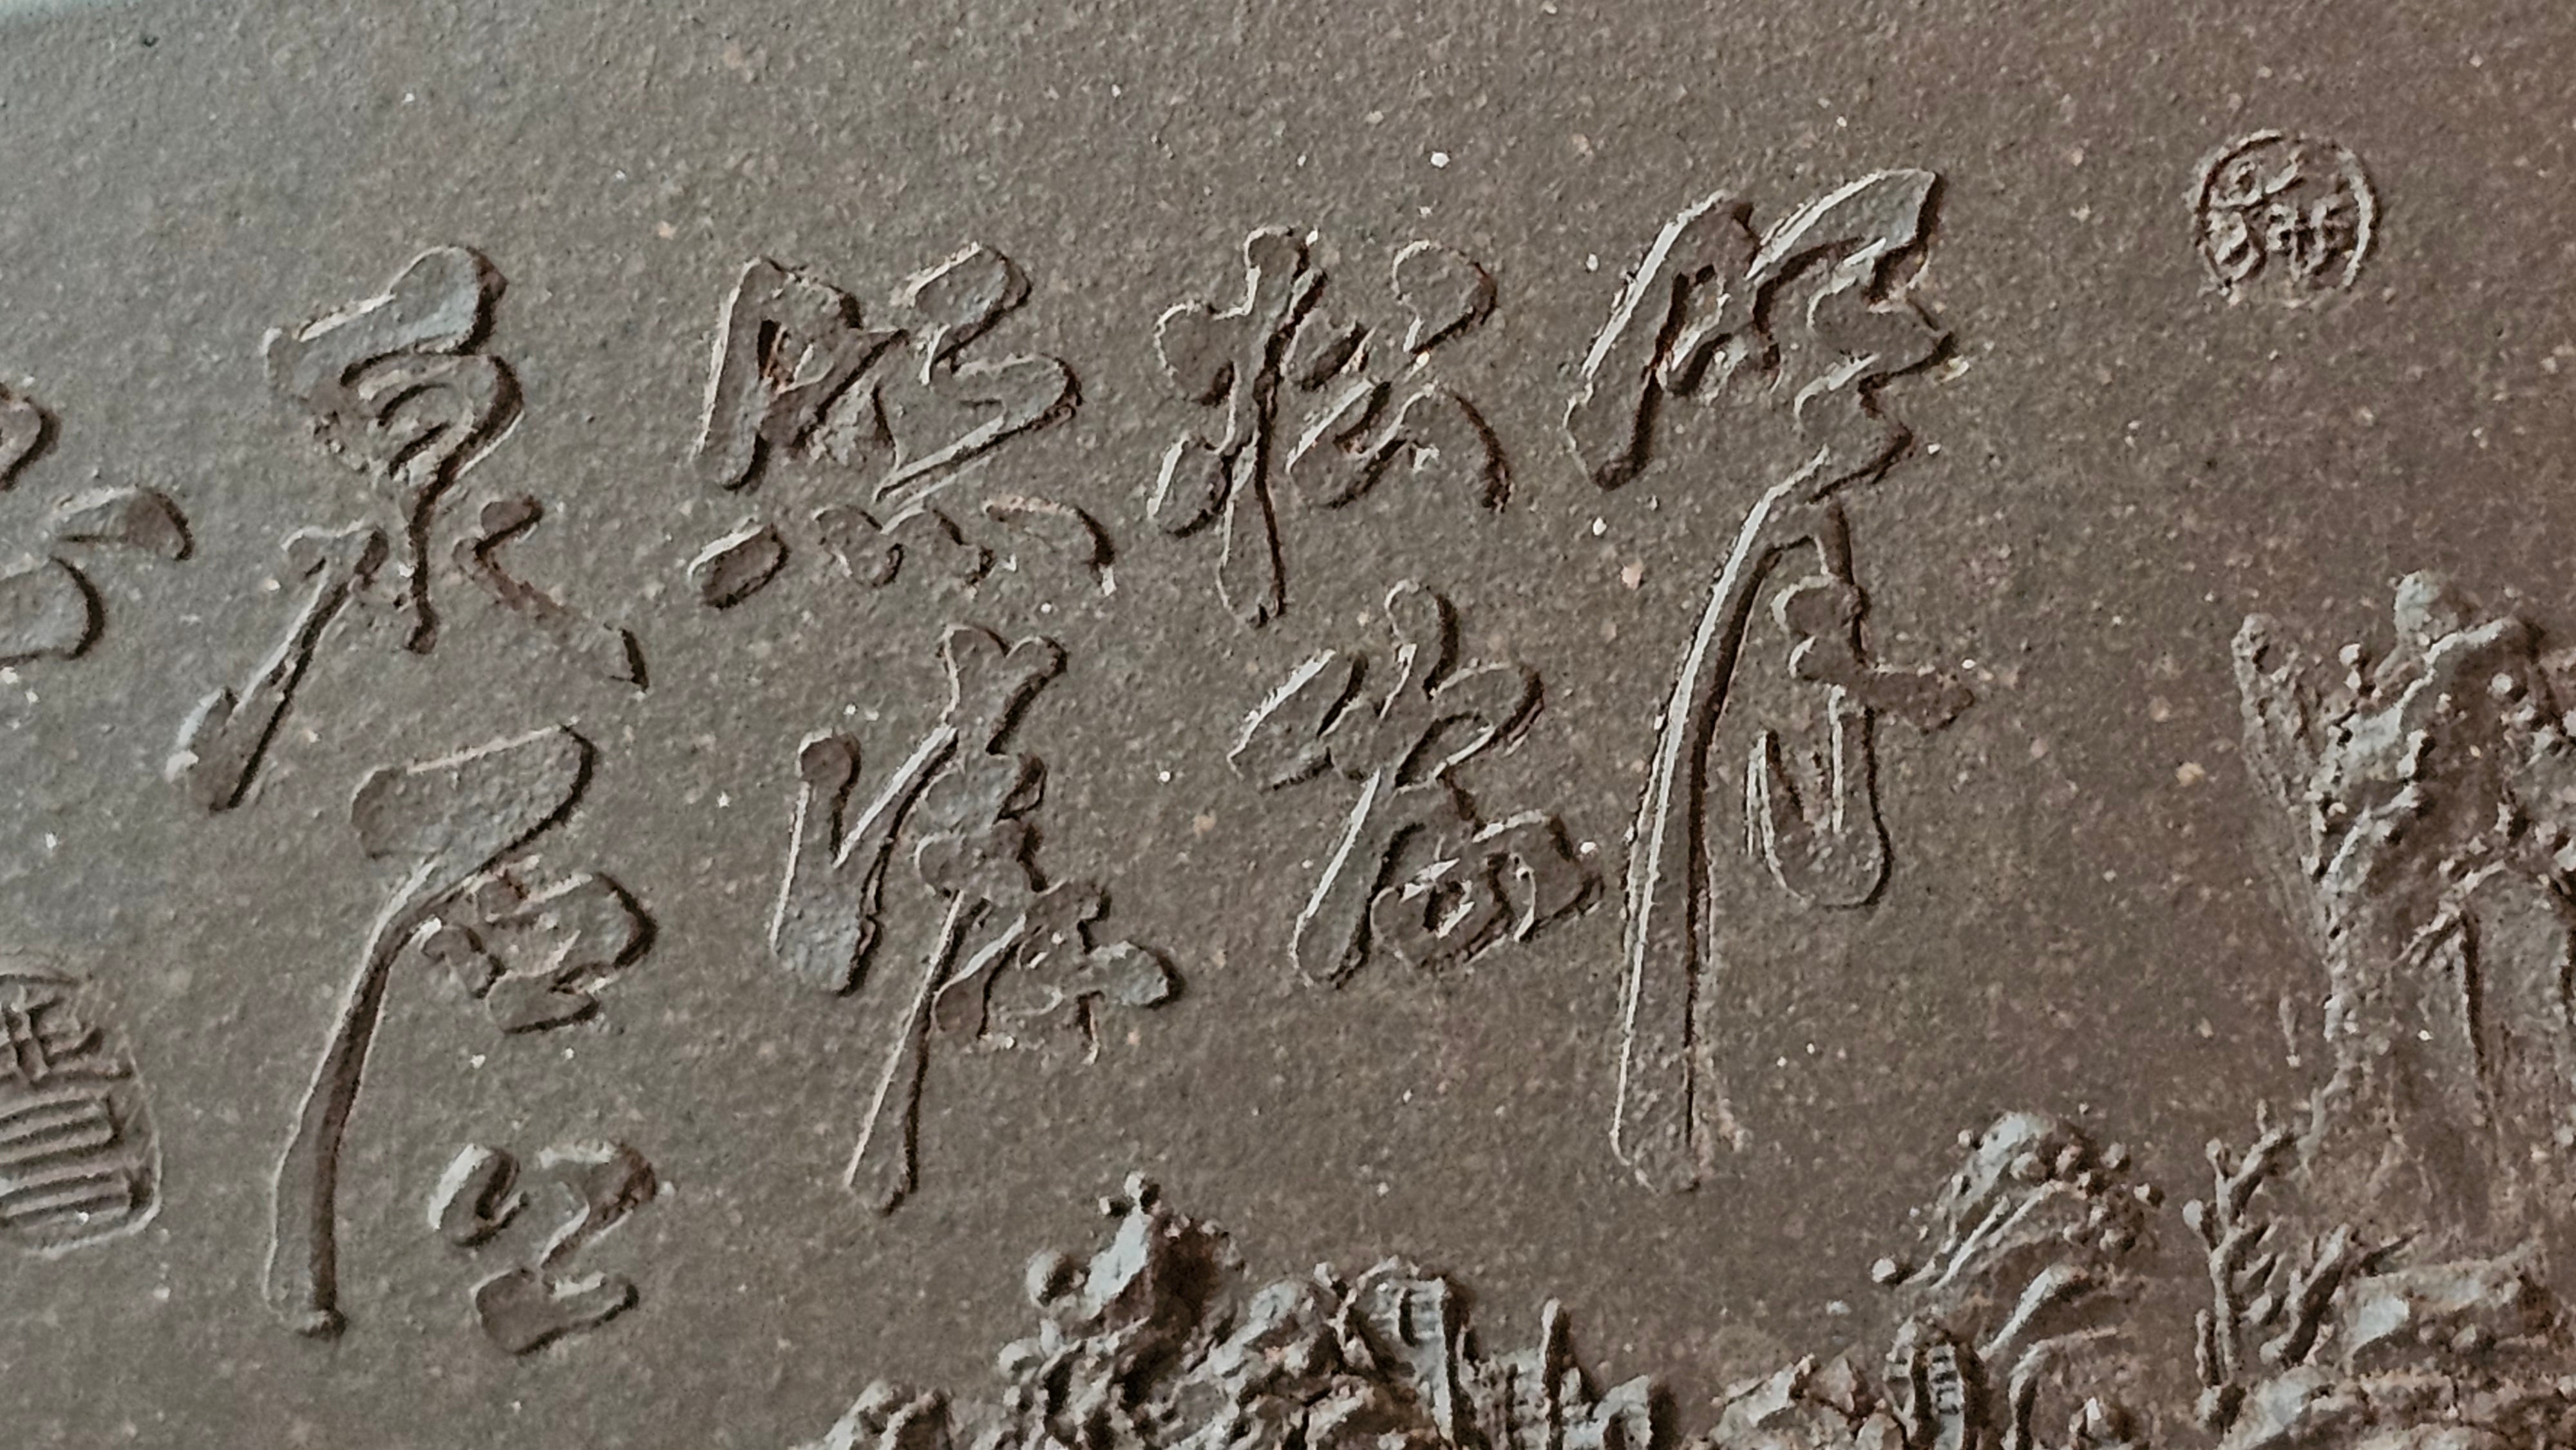 明月
松間
照清
泉石上